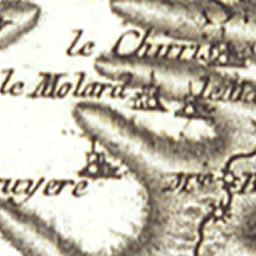 le Churris
le Molard
le Ma
uyere
Mᶦⁿ